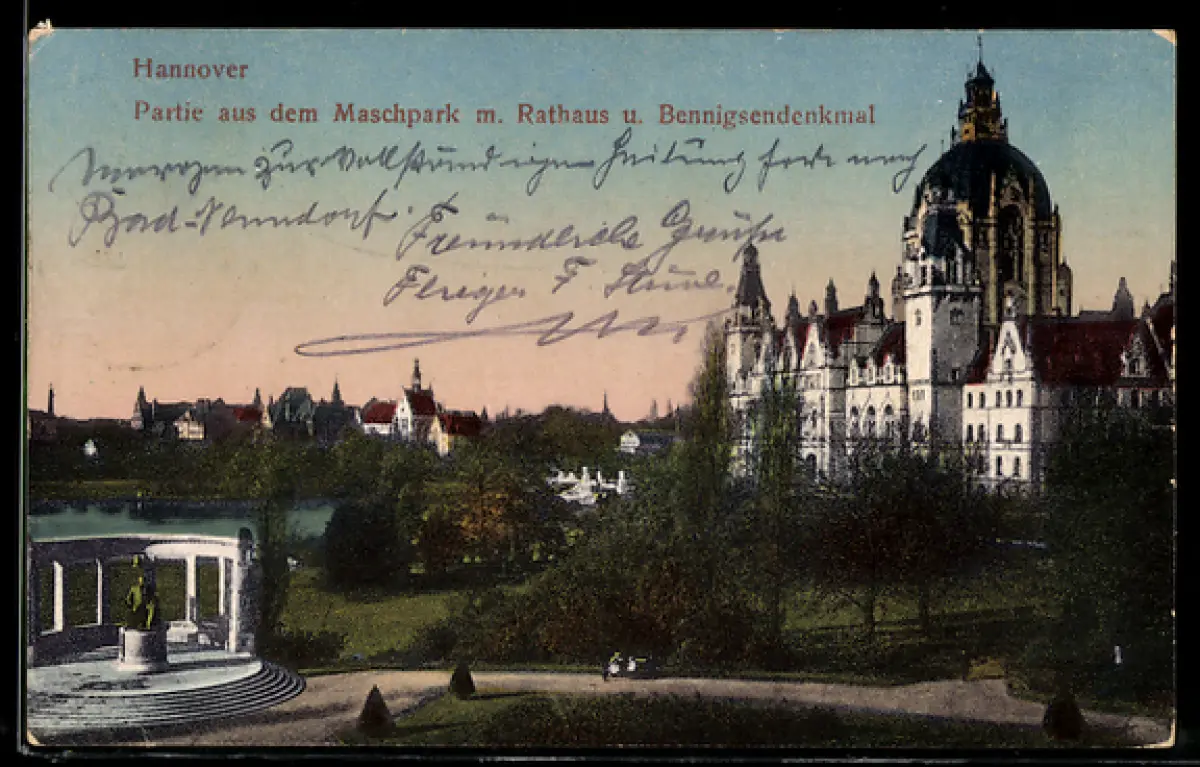 Hannover
Partie aus dem Maschpark m. Rathaus u. Bennigsendenkmal
zur vollständigen Heilung nach
Bad-Nenndorf. Freundliche Grüße
Flieger F.